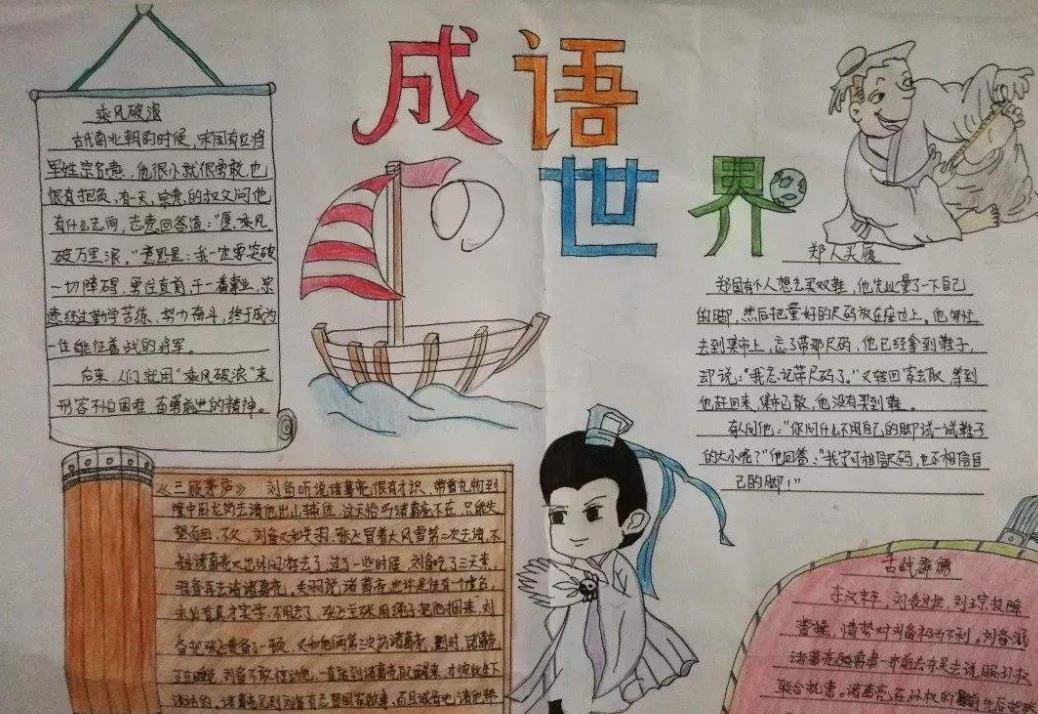 成语
世界
乘风破浪
古代南北朝的时候，宋国有位将
军姓宗名悫，他很小就很勇敢，也
很有抱负，有一天，宗悫的叔父问他
有什么志向，宗悫回答道："愿乘风
破万里浪。"意思是：我一定要突破
一切障碍，勇往直前，干一番事业，宗
悫经过勤学苦练，努力奋斗，终于成为
一位能征善战的将军。
后来，人们就用"乘风破浪"来
形容不怕困难，奋勇前进的精神。
郑人买履
郑国有个人想去买双鞋，他先量了一下自己
的脚，然后把量好的尺码放在座位上。他匆忙
去到集市上，忘了带那尺码，他已经拿到鞋子，
却说："我忘记带尺码了。"又转回家去取，等到
他赶回来，集市已散，他没有买到鞋。
有人问他："你问什么不用自己的脚试一试鞋子
的大小呢？"他回答："我宁可相信尺码，也不相信自
己的脚！"
《三顾茅庐》 刘备听说诸葛亮很有才识，带着礼物到
隆中卧龙岗去请他出山辅佐，这天恰巧诸葛亮不在，只能失
望而回，不久，刘备又和关羽、张飞冒着大风雪第二次去请，不
料诸葛亮又出外闲游去了，过了一些时候，刘备吃了三天素，
准备再去请诸葛亮。关羽说诸葛亮也许是徒有一个虚名，
未必有真才实学，不用去了，张飞主张用绳子把他捆来，刘
备把张飞责备了一顿，又和他俩第三次访诸葛亮，到时，诸葛亮
正在睡觉，刘备不敢惊动他，一直站到诸葛亮自己醒来，才彼此坐下
谈话
古战群儒
东汉末年，刘表过世，刘琮投降
曹操，情势对刘备极为不利。刘备派
诸葛亮随鲁肃一希前去去吴去说服孙权
联合抗曹。诸葛亮在孙权的